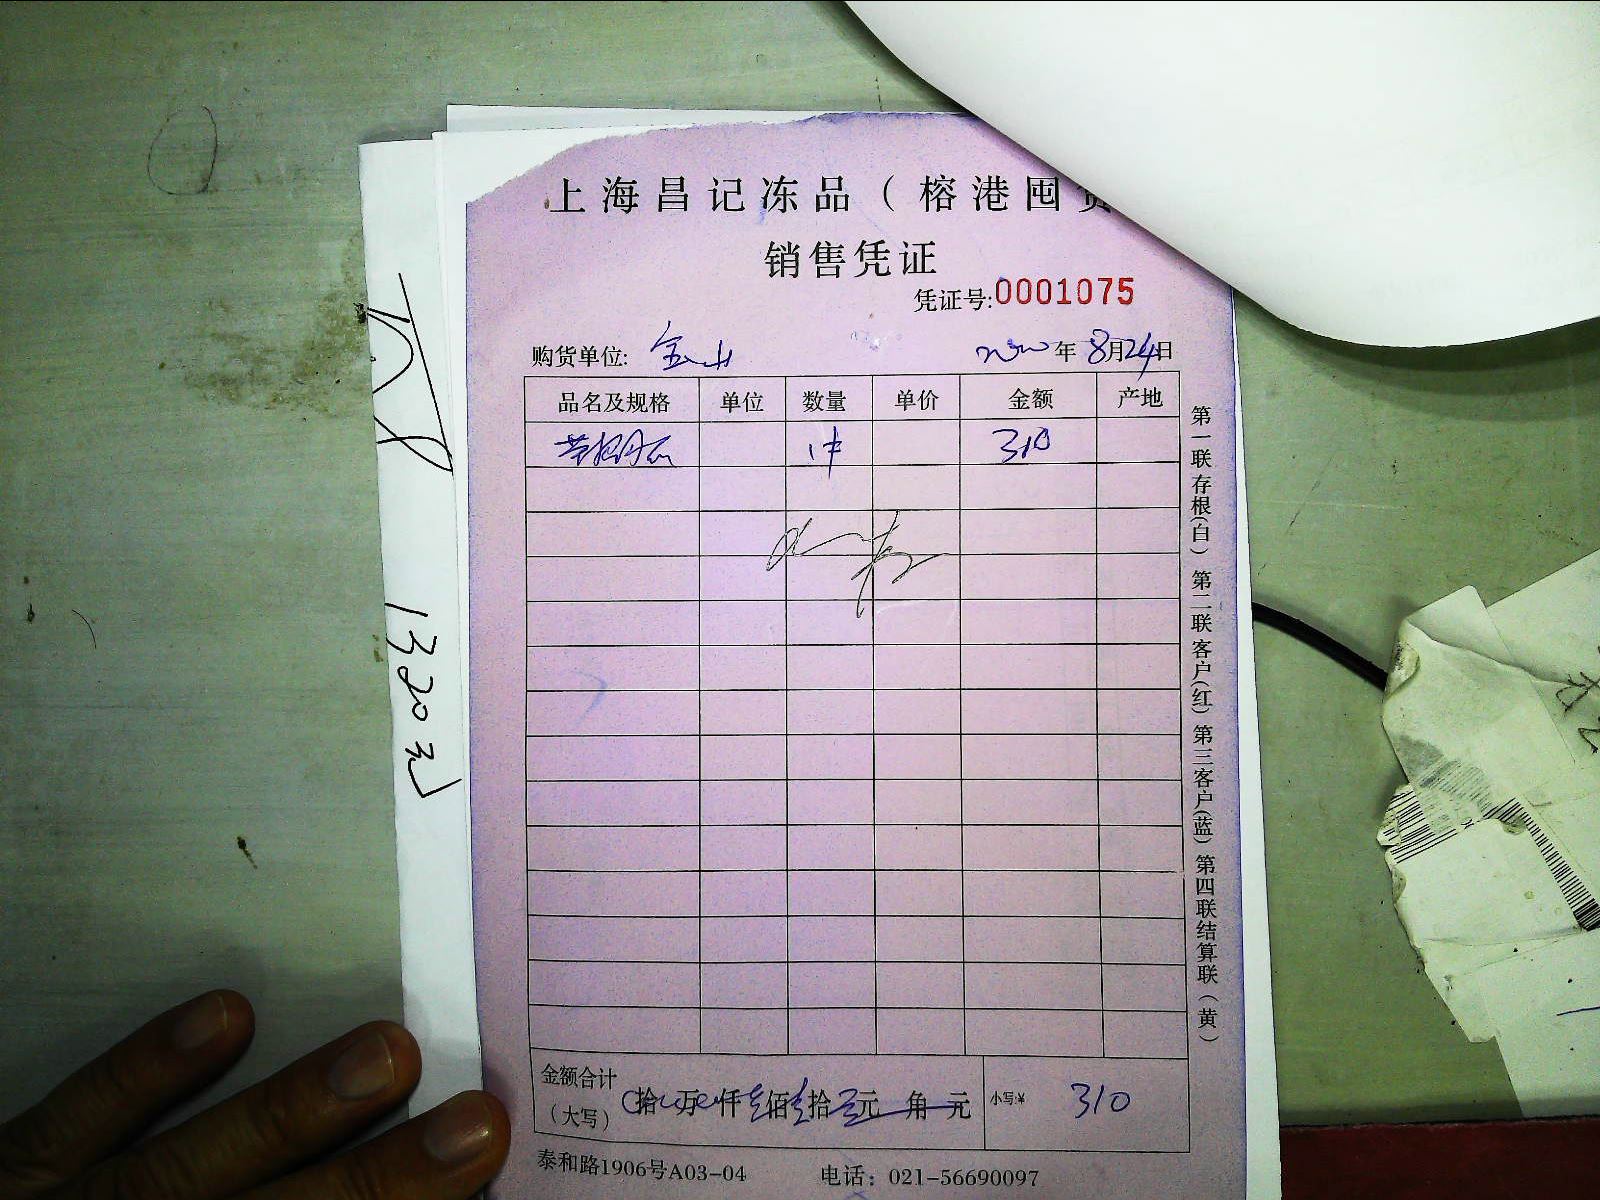 上海昌记冻品（榕港囤货
销售凭证
凭证号:0001075
购货单位: 金山 年 8月24日
品名及规格 单位 数量 单价 金额 产地
1件 310
金额合计
（大写） 拾 万 仟 佰 拾 元 角 元 小写:¥ 310
泰和路1906号A03-04 电话：021-56690097
第一联存根(白) 第二联客户(红) 第三客户(蓝) 第四联结算联（黄）
1320元